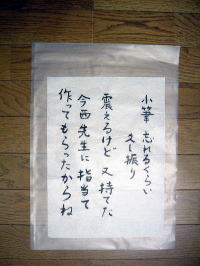 小筆 忘れるくらい
久し振り
震えるけど 又持てた
今西先生に 指当て
作ってもらったからね